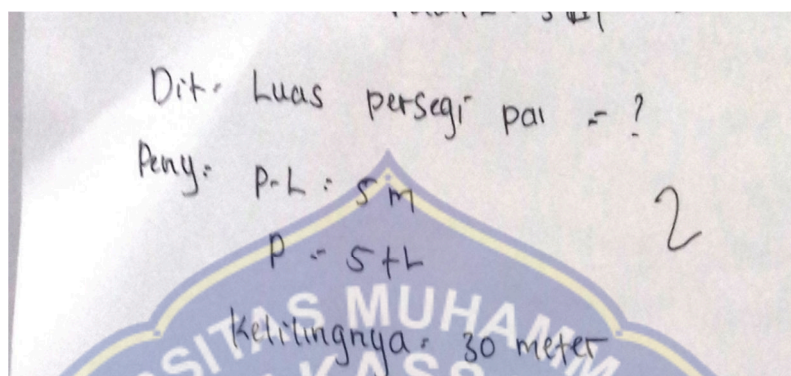 Dit. Luas persegi pai = ?
Peny: P-L = 5 m
2
P = 5+L
Kelilingnya = 30 meter
SITAS MUHAMM
KASS